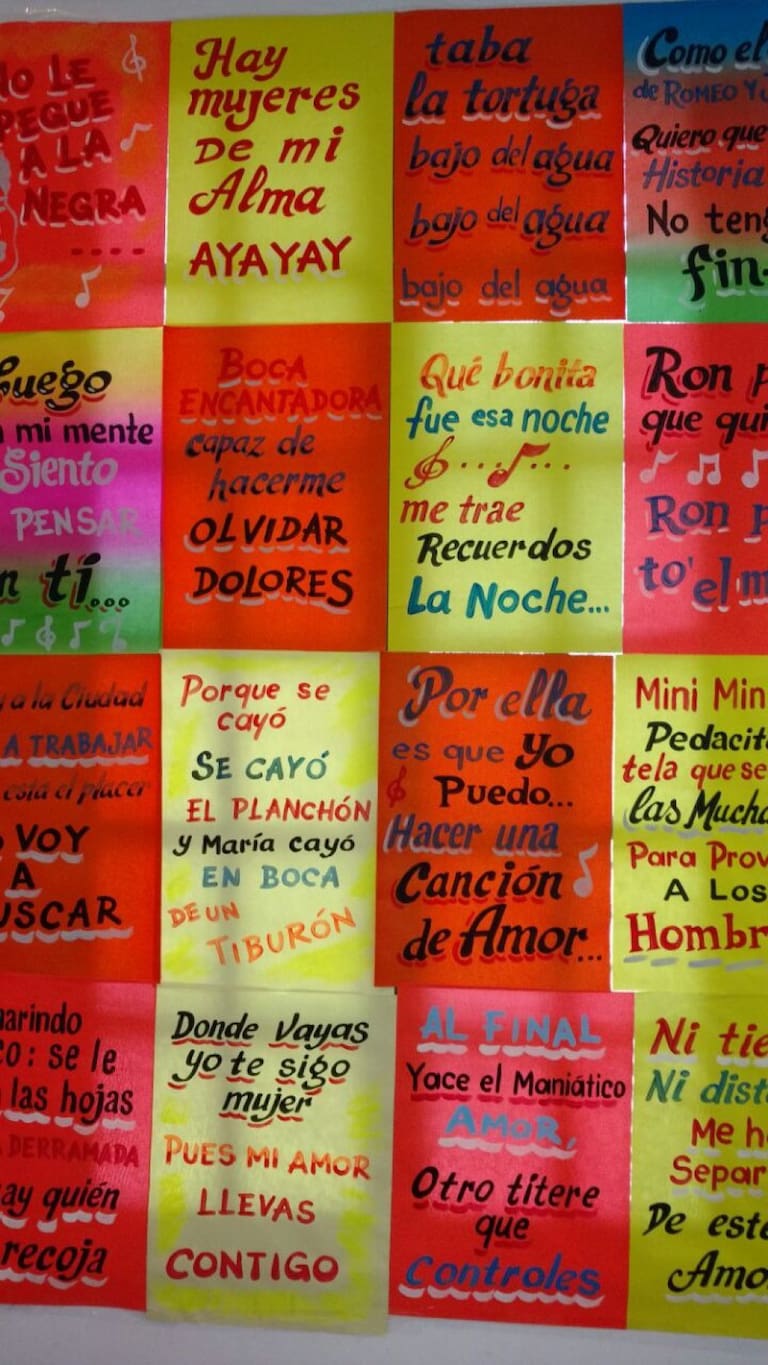 LE
PEGUE
A LA
NEGRA
....
Hay
mujeres
De mi
Alma
AYAYAY
taba
la tortuga
bajo del agua
bajo del agua
bajo del agua
Como el
de ROMEO Y
Quiero que
Historia
No
fin
mi mente
Siento
PENSAR
ti...
BOCA
ENCANTADORA
capaz de
hacerme
OLVIDAR
DOLORES
Qué bonita
fue esa noche
... ...
me trae
Recuerdos
La Noche...
Ron
que
Ron
to' el
a la Ciudad
A TRABAJAR
está el placer
VOY
A
Porque se
cayó
SE CAYÓ
EL PLANCHÓN
y María cayó
EN BOCA
DE UN
TIBURÓN
Por ella
es que Yo
Puedo...
Hacer una
Canción
de Amor...
Mini
tela que se
las
Para
A Los
se le
las hojas
DERRAMADA
quién
recoja
Donde Vayas
yo te sigo
mujer
PUES MI AMOR
LLEVAS
CONTIGO
AL FINAL
Yace el Maniático
AMOR,
Otro títere
que
Controles
Ni
Ni
Me
De